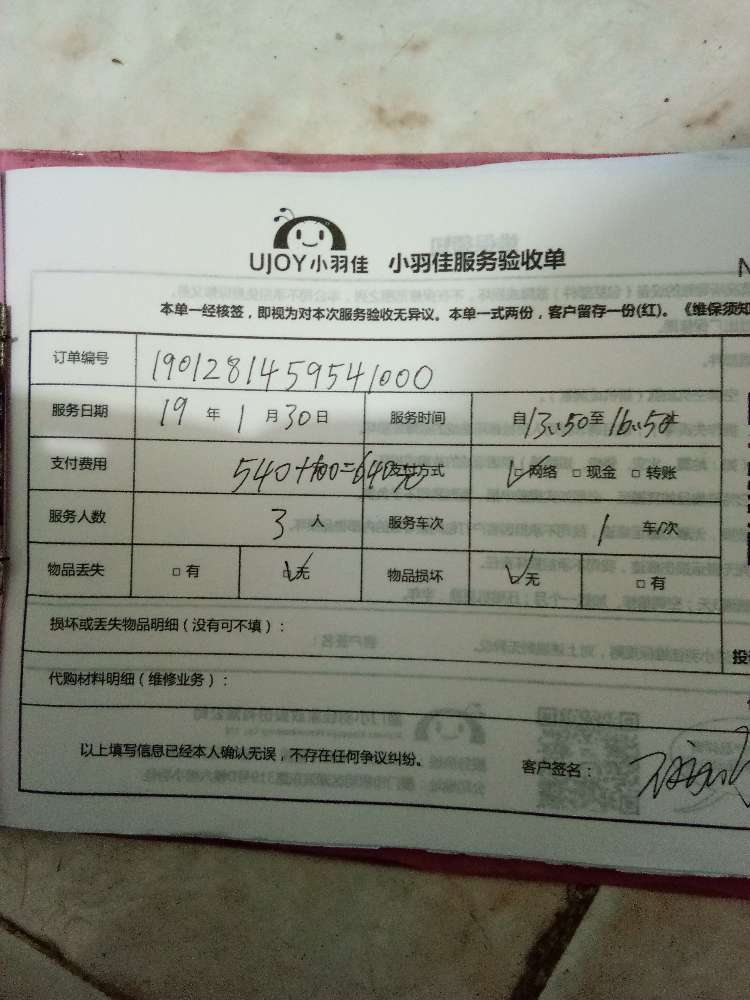 UJOY小羽佳 小羽佳服务验收单
N
本单一经核签，即视为对本次服务验收无异议。本单一式两份，客户留存一份(红)。《维保须知
订单编号 1901281459541000
服务日期 19 年 1 月 30 日 服务时间 自13:50至16:50止
支付费用 540+100=640元 支付方式 网络 现金 转账
服务人数 3 人 服务车次 1 车/次
物品丢失 有 无 物品损坏 无 有
损坏或丢失物品明细（没有可不填）：
投
代购材料明细（维修业务）：
以上填写信息已经本人确认无误，不存在任何争议纠纷。 客户签名：